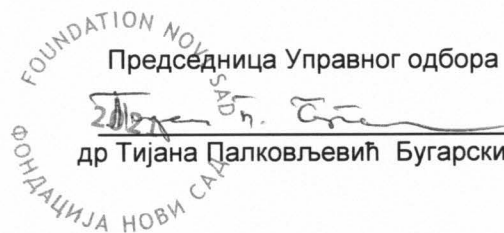 FOUNDATION NOVI SAD
Председница Управног одбора
2021
др Тијана Палковљевић Бугарски
ФОНДАЦИЈА НОВИ САД